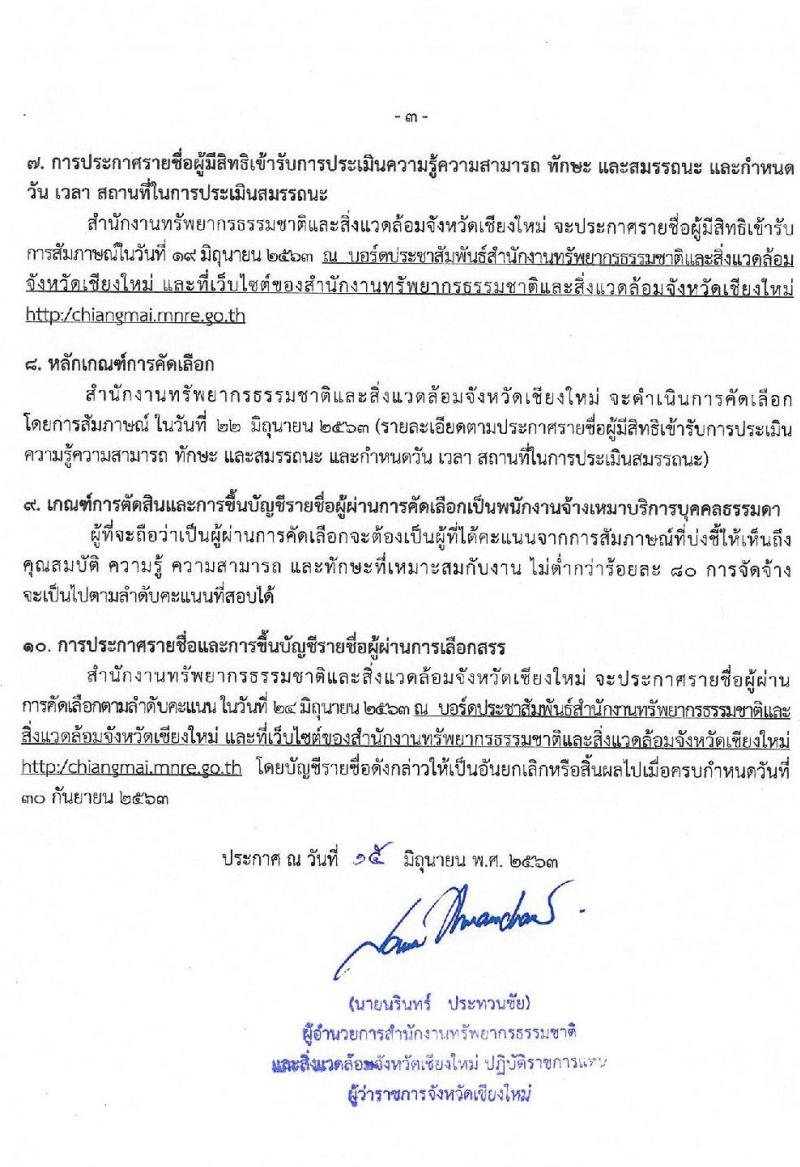 - ๓ -
๗. การประกาศรายชื่อผู้มีสิทธิเข้ารับการประเมินความรู้ความสามารถ ทักษะ และสมรรถนะ และกำหนด
วัน เวลา สถานที่ในการประเมินสมรรถนะ
สำนักงานทรัพยากรธรรมชาติและสิ่งแวดล้อมจังหวัดเชียงใหม่ จะประกาศรายชื่อผู้มีสิทธิเข้ารับ
การสัมภาษณ์ในวันที่ ๑๙ มิถุนายน ๒๕๖๓ ณ บอร์ดประชาสัมพันธ์สำนักงานทรัพยากรธรรมชาติและสิ่งแวดล้อม
จังหวัดเชียงใหม่ และที่เว็บไซต์ของสำนักงานทรัพยากรธรรมชาติและสิ่งแวดล้อมจังหวัดเชียงใหม่
http:/chiangmai.mnre.go.th
๘. หลักเกณฑ์การคัดเลือก
สำนักงานทรัพยากรธรรมชาติและสิ่งแวดล้อมจังหวัดเชียงใหม่ จะดำเนินการคัดเลือก
โดยการสัมภาษณ์ ในวันที่ ๒๒ มิถุนายน ๒๕๖๓ (รายละเอียดตามประกาศรายชื่อผู้มีสิทธิเข้ารับการประเมิน
ความรู้ความสามารถ ทักษะ และสมรรถนะ และกำหนดวัน เวลา สถานที่ในการประเมินสมรรถนะ)
๙. เกณฑ์การตัดสินและการขึ้นบัญชีรายชื่อผู้ผ่านการคัดเลือกเป็นพนักงานจ้างเหมาบริการบุคคลธรรมดา
ผู้ที่จะถือว่าเป็นผู้ผ่านการคัดเลือกจะต้องเป็นผู้ที่ได้คะแนนจากการสัมภาษณ์ที่บ่งชี้ให้เห็นถึง
คุณสมบัติ ความรู้ ความสามารถ และทักษะที่เหมาะสมกับงาน ไม่ต่ำกว่าร้อยละ ๘๐ การจัดจ้าง
จะเป็นไปตามลำดับคะแนนที่สอบได้
๑๐. การประกาศรายชื่อและการขึ้นบัญชีรายชื่อผู้ผ่านการเลือกสรร
สำนักงานทรัพยากรธรรมชาติและสิ่งแวดล้อมจังหวัดเชียงใหม่ จะประกาศรายชื่อผู้ผ่าน
การคัดเลือกตามลำดับคะแนน ในวันที่ ๒๔ มิถุนายน ๒๕๖๓ ณ บอร์ดประชาสัมพันธ์สำนักงานทรัพยากรธรรมชาติและ
สิ่งแวดล้อมจังหวัดเชียงใหม่ และที่เว็บไซต์ของสำนักงานทรัพยากรธรรมชาติและสิ่งแวดล้อมจังหวัดเชียงใหม่
http:/chiangmai.mnre.go.th โดยบัญชีรายชื่อดังกล่าวให้เป็นอันยกเลิกหรือสิ้นผลไปเมื่อครบกำหนดวันที่
๓๐ กันยายน ๒๕๖๓
ประกาศ ณ วันที่ ๑๕ มิถุนายน พ.ศ. ๒๕๖๓
(นายนรินทร์ ประทวนชัย)
ผู้อำนวยการสำนักงานทรัพยากรธรรมชาติ
และสิ่งแวดล้อมจังหวัดเชียงใหม่ ปฏิบัติราชการแทน
ผู้ว่าราชการจังหวัดเชียงใหม่